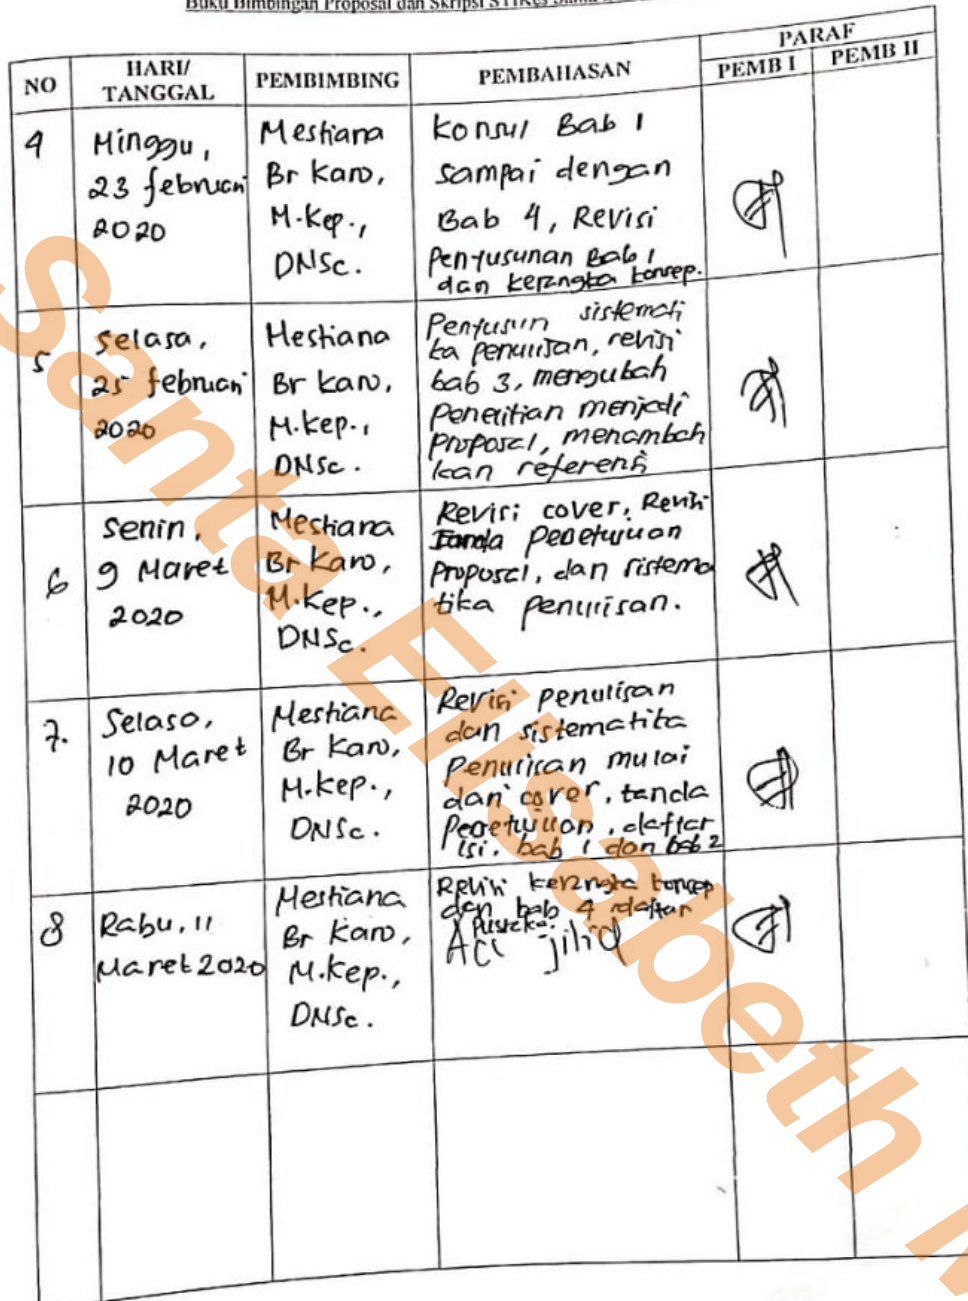 Buku Bimbingan Proposal dan Skripsi STIKes Santa
NO
HARI/
TANGGAL
PEMBIMBING
PEMBAHASAN
PARAF
PEMB I
PEMB II
4
Minggu,
23 februari
2020
Mestiana
Br Karo,
M.Kep.,
DNSc.
Konsul Bab 1
sampai dengan
Bab 4, Revisi
Penyusunan Bab 1
dan kerangka konsep.
5
Selasa,
25 februari
2020
Mestiana
Br Karo,
M.Kep.,
DNSc.
Penyusun sistemati
ka penulisan, revisi
bab 3, mengubah
Penelitian menjadi
Proposal, menambah
kan referensi
6
Senin,
9 Maret
2020
Mestiana
Br Karo,
M.Kep.,
DNSc.
Revisi cover, Revisi
Tanda Persetujuan
Proposal, dan sistema
tika penulisan.
7.
Selasa,
10 Maret
2020
Mestiana
Br Karo,
M.Kep.,
DNSc.
Revisi penulisan
dan sistematika
Penulisan mulai
dari cover, tanda
Persetujuan, daftar
isi, bab 1 dan bab 2
8
Rabu, 11
Maret 2020
Mestiana
Br Karo,
M.Kep.,
DNSc.
Revisi kerangka konsep
dan bab 4 daftar
Pustaka.
Acc jilid
Santa Elisabeth